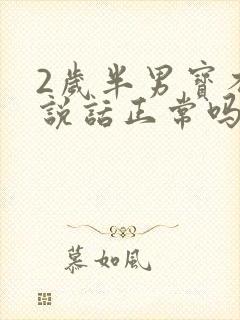 2歲半男寶不
說話正常嗎
慕如風